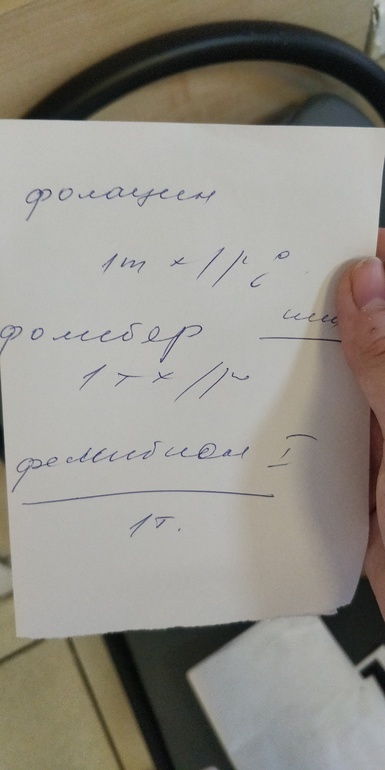 фолацин
1т x 1 р
или
фолибер
1 т x 1 р
фемибион I
1т.